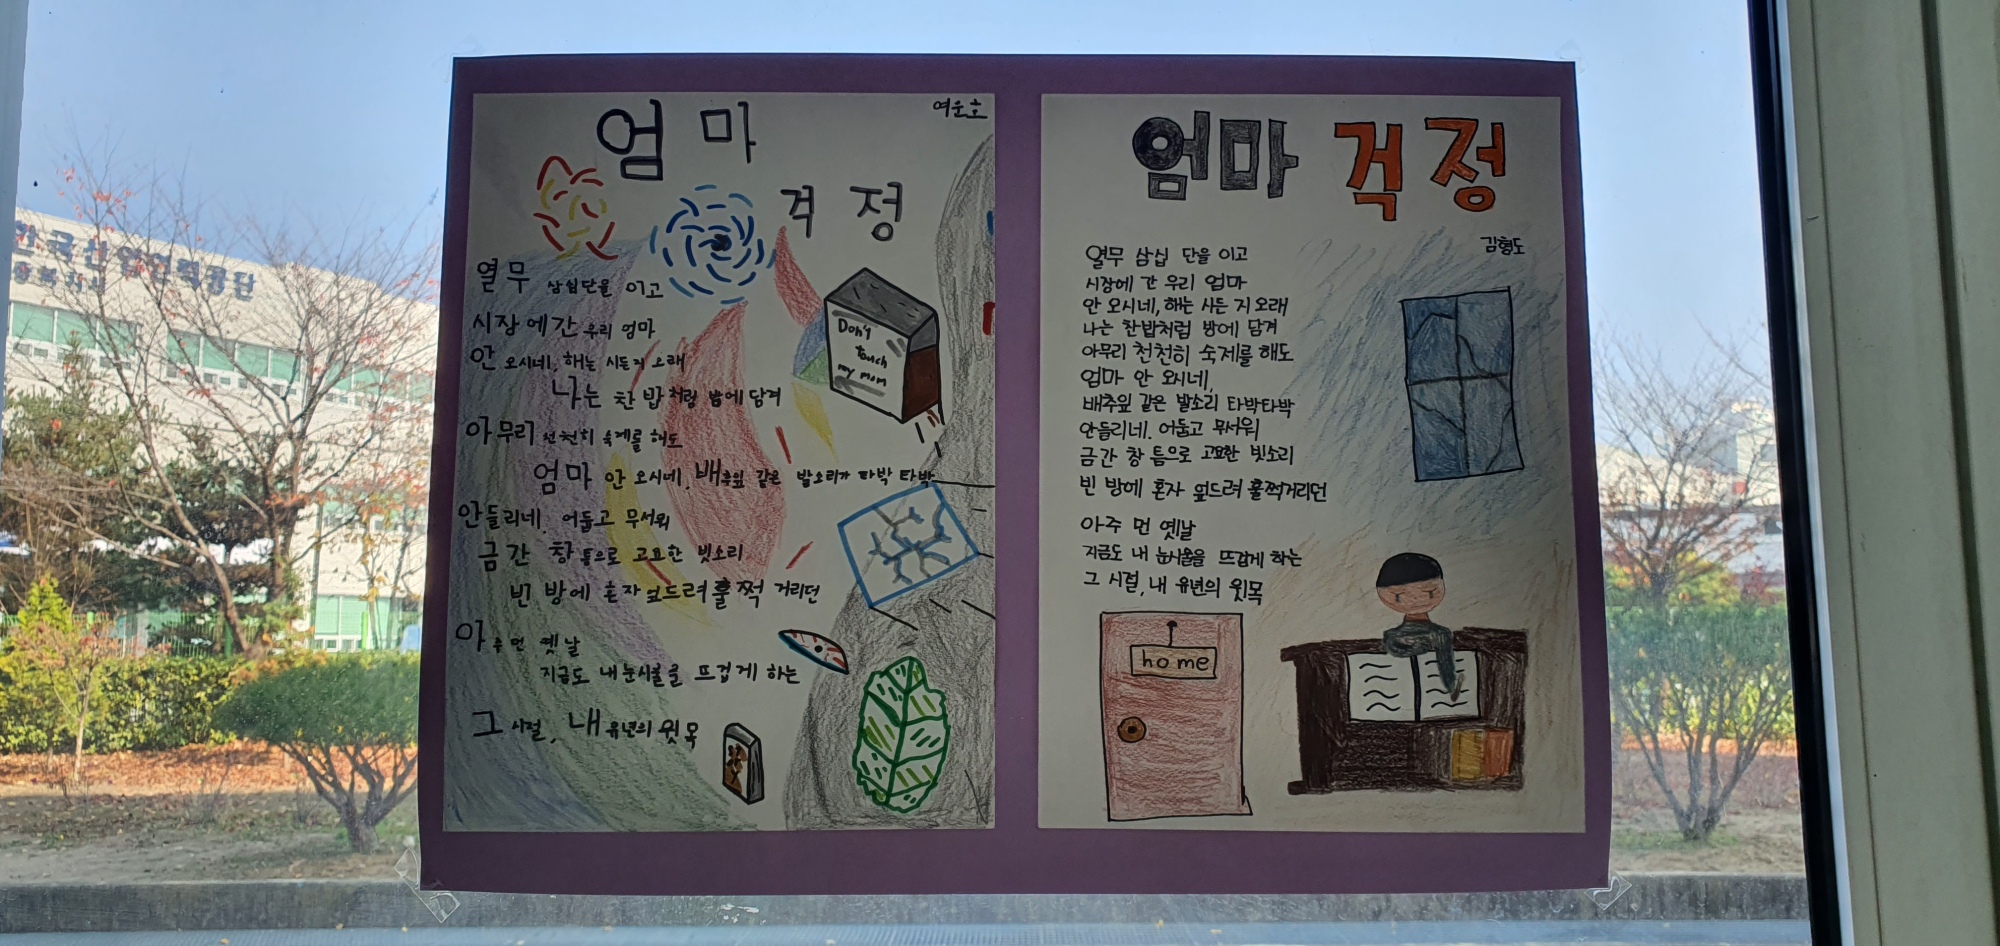 한국산업인력공단
충북지사
엄마
여운호
걱정
열무 삼십단을 이고
시장에간 우리 엄마
안 오시네, 해는 시든지 오래
나는 찬밥처럼 방에 담겨
아무리 천천히 숙제를 해도
엄마 안 오시네, 배추잎 같은 발소리가 타박 타박
안들리네, 어둡고 무서워
금간 창 틈으로 고요한 빗소리
빈 방에 혼자 엎드려 훌쩍 거리던
아주 먼 옛날
지금도 내 눈시울을 뜨겁게 하는
그 시절, 내 유년의 윗목
Don't
touch
my mom
엄마 걱정
김형도
열무 삼십 단을 이고
시장에 간 우리 엄마
안 오시네, 해는 시든 지 오래
나는 찬밥처럼 방에 담겨
아무리 천천히 숙제를 해도
엄마 안 오시네,
배추잎 같은 발소리 타박타박
안들리네. 어둡고 무서워
금간 창 틈으로 고요한 빗소리
빈 방에 혼자 엎드려 훌쩍거리던
아주 먼 옛날
지금도 내 눈시울을 뜨겁게 하는
그 시절, 내 유년의 윗목
home